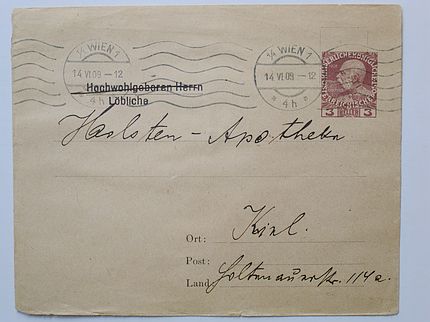 14 WIEN 1
14 VI 09 – 12
* 4 h *
14 WIEN 1
14 VI 09 – 12
* 4 h *
3 HELLER 3
Hochwohlgeboren Herrn
Löbliche
Holsten - Apotheke
Ort: Kiel.
Post:
Land: Holtenauerstr. 114a.